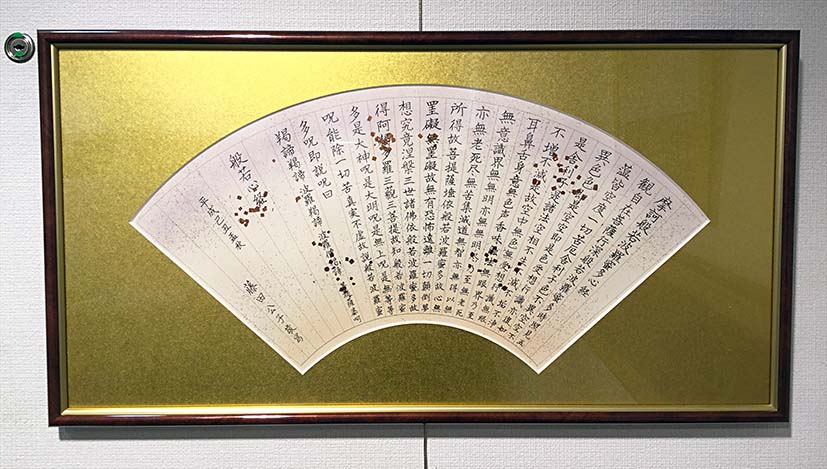 摩訶般若波羅蜜多心経
観自在菩薩行深般若波羅蜜多時照見五
蘊皆空度一切苦厄舎利子色不異空空不
異色色即是空空即是色受想行識亦復如
是舎利子是諸法空相不生不滅不垢不浄
不増不減是故空中無色無受想行識無眼
耳鼻舌身意無色声香味触法無眼界乃至
無意識界無無明亦無無明尽乃至無老死
亦無老死尽無苦集滅道無智亦無得以無
所得故菩提薩埵依般若波羅蜜多故心無
罣礙無罣礙故無有恐怖遠離一切顛倒夢
想究竟涅槃三世諸佛依般若波羅蜜多故
得阿耨多羅三藐三菩提故知般若波羅蜜
多是大神呪是大明呪是無上呪是無等等
呪能除一切苦真実不虚故説般若波羅蜜
多呪即説呪曰
羯諦羯諦 波羅羯諦 波羅僧羯諦 菩提薩婆呵
般若心経
平成己丑
藤田公子敬写